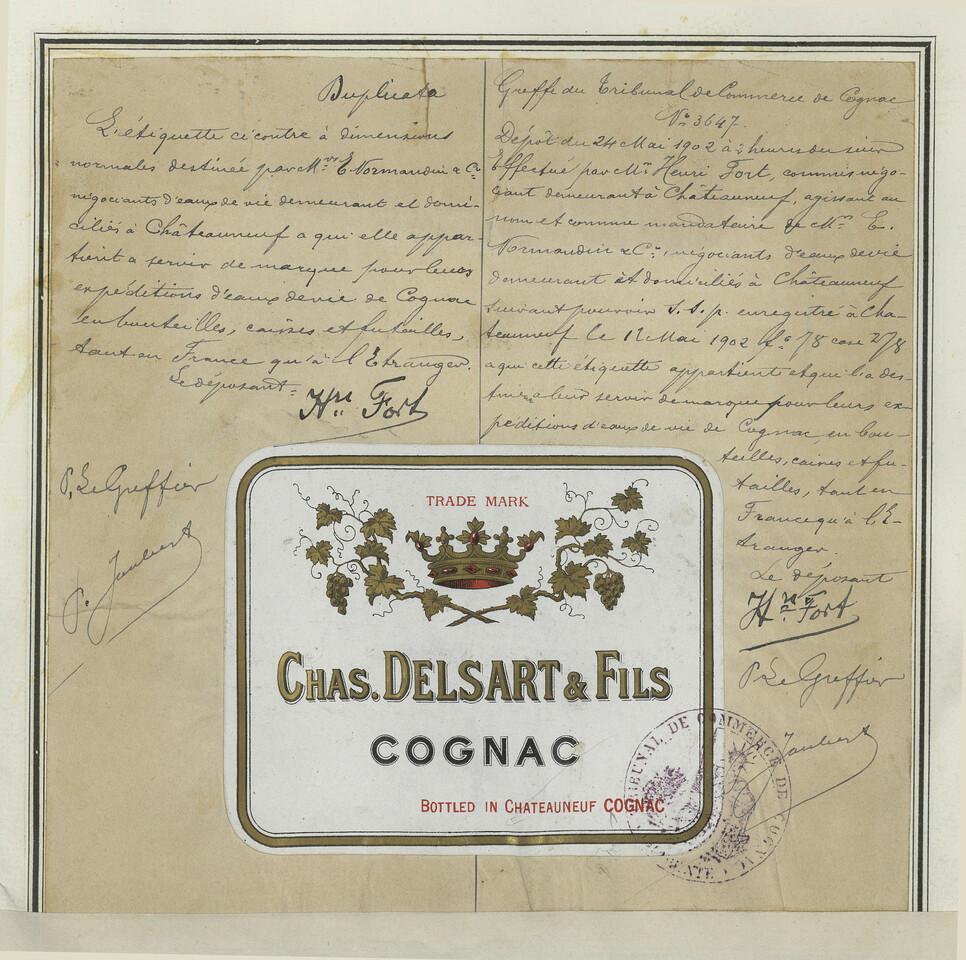 Duplicata
L'étiquette ci contre à dimensions
normales destinée par Mrs E. Normandin & Cie
négociants d'eaux de vie demeurant et domi-
ciliés à Châteauneuf a qui elle appar-
tient a servir de marque pour leurs
expéditions d'eaux de vie de Cognac
en bouteilles, caisses et futailles,
tant en France qu'à l'Etranger.
Le déposant
Hri Fort
P. Le Greffier
P. Jaubert
Greffe du Tribunal de Commerce de Cognac
No 3647.
Dépôt du 24 Mai 1902 à 2 heures du soir
Effectué par Mr Henri Fort, commis négo-
ciant demeurant à Châteauneuf, agissant au
nom et comme mandataire de Mrs E.
Normandin & Cie, négociants d'eaux de vie
demeurant et domiciliés à Châteauneuf
suivant pouvoir s.s.p. enregistré à Cha-
teauneuf le 12 Mai 1902 fo 78 case 278
a qui cette étiquette appartient et qui l'a des-
tinée a leur servir de marque pour leurs ex-
péditions d'eaux de vie de Cognac, en bou-
teilles, caisses et fu-
tailles, tant en
France qu'à l'E-
tranger.
Le déposant
Hri Fort
P. Le Greffier
Jaubert
TRADE MARK
CHAS. DELSART & FILS
COGNAC
BOTTLED IN CHATEAUNEUF COGNAC
TRIBUNAL DE COMMERCE DE COGNAC